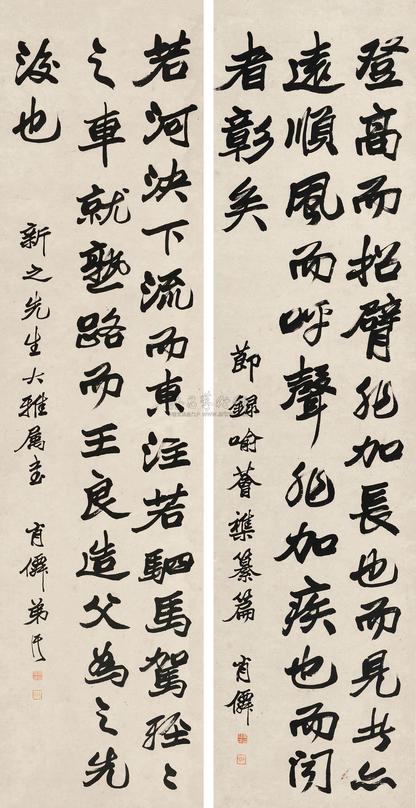 登高而招臂非加長也而見者亦
遠順風而呼聲非加疾也而聞
者彰矣
節錄喻薈樵纂篇 肖僊
若河決下流而東注若駟馬駕輕〻
之車就熟路而王良造父為之先
後也
新之先生大雅属書 肖僊弟